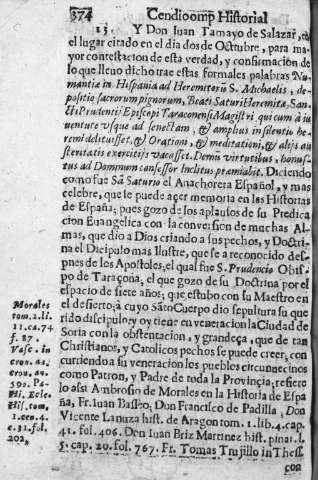 374 Cendioomp Historial
13. Y Don Iuan Tamayo de Salazar, en
el lugar citado en el dia dos de Octubre, para ma-
yor contestacion de esta verdad, y confirmacion de
lo que lleno dicho trae estas formales palabras Nu-
mantiæ in Hispania ad Heremiterii S. Michaelis, de-
positio sacrorum pignorum, Beati Saturi Heremitæ, San-
cti Prudentii Episcopi Taraconensis Magistri qui cum à iu
uentute usque ad senectam, & amplius in silentio he-
remi delituisset, & Orationi, & meditationi, & alijs au
stentatis exercitijs vacasset. Demũ virtutibus, honus-
tus ad Domnum confessor Inclitus præmiabit. Diciendo
como fue Sã Saturio el Anachoreta Español, y mas
celebre, que le puede açer memoria en las Historias
de España; pues gozo de los aplausos de su Predica
cion Euangelica con la conversion de muchas Al-
mas, que dio a Dios criando a sus pechos, y Doctri-
na el Dicipulo mas Ilustre, que se a reconocido des-
pues de los Apostoles; el qual fue S. Prudencio Obis-
po de Taraçona, el que gozo de su Doctrina por el
espacio de siete años; que estubo con su Maestro en
el desierto; à cuyo Sãto Cuerpo dio sepultura su que-
rido discipulo; y oy tiene en veneracion la Ciudad de
Soria con la obstentacion, y grandeça, que de tan
Christianos, y Catolicos pechos se puede creer, con
curriendo a su veneracion los pueblos circunvecinos
como Patron, y Padre de toda la Provincia; refiere
lo assi Ambrosio de Morales en la Historia de Espa
ña, Fr. Iuan Basseo; Don Francisco de Padilla, Don
Vicente Lanuza hist. de Aragon tom. 1. lib. 4. cap.
41. fol. 406. Don Iuan Briz Martinez hist. pinat. l.
5. cap. 20. fol. 767. Fr. Tomas Trujillo in Thess
con
Morales
tom. 2. li.
11. ca. 74
f. 27.
Vasc. in
cro. au.
590. Pa-
Hi. Ecle.
His. tom.
1. cen. 4
c. 31. fol.
202.